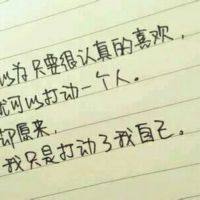 以为只要很认真的喜欢，
就可以打动一个人。
却原来，
我只是打动了我自己。